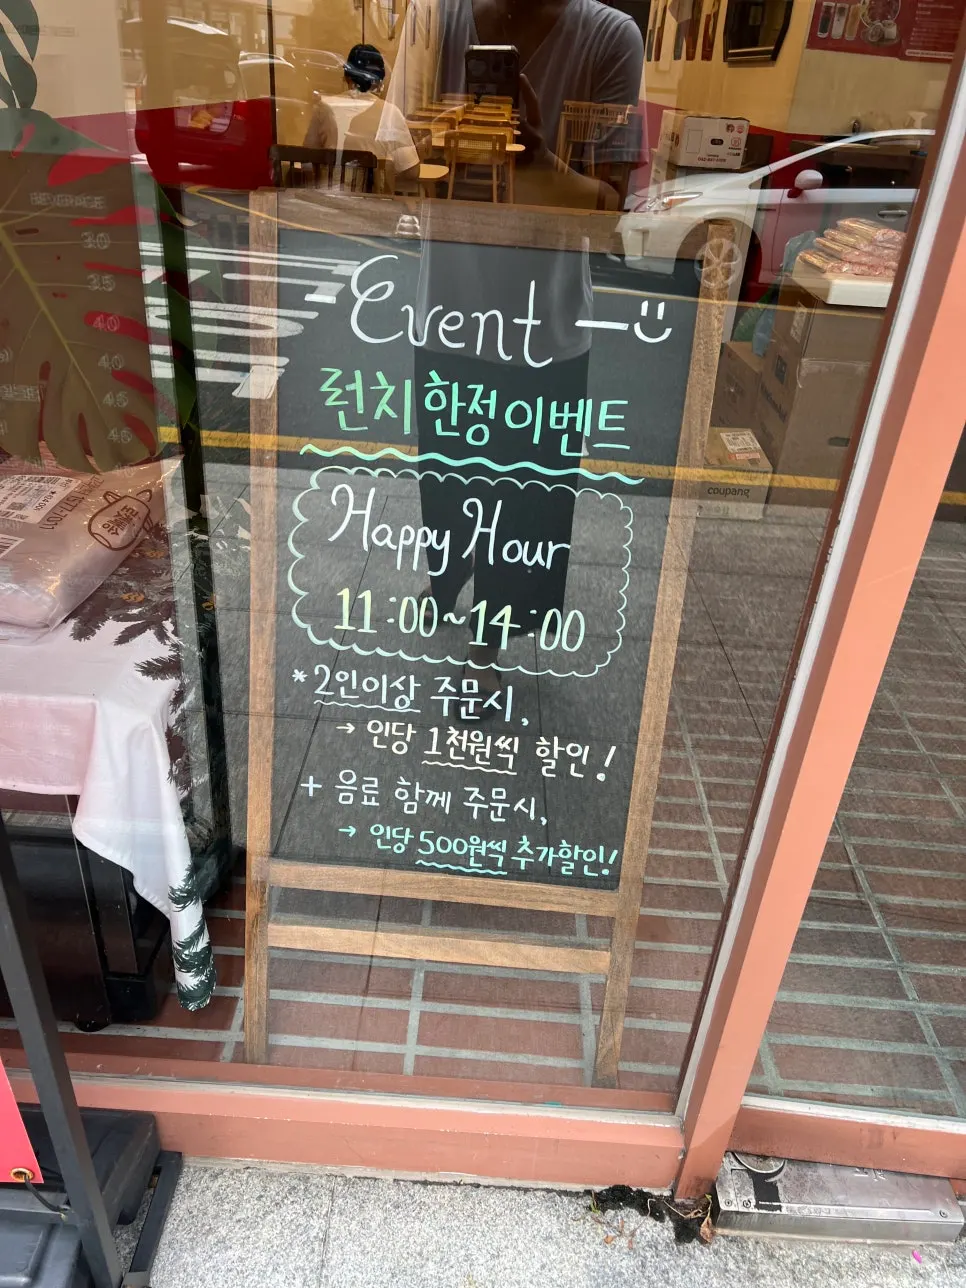 BEVERAGE
30
35
40
40
45
40
- Event -
런치 한정 이벤트
Happy Hour
11:00~14:00
*2인이상 주문시,
→ 인당 1천원씩 할인!
+ 음료 함께 주문시,
→ 인당 500원씩 추가할인!
coupang